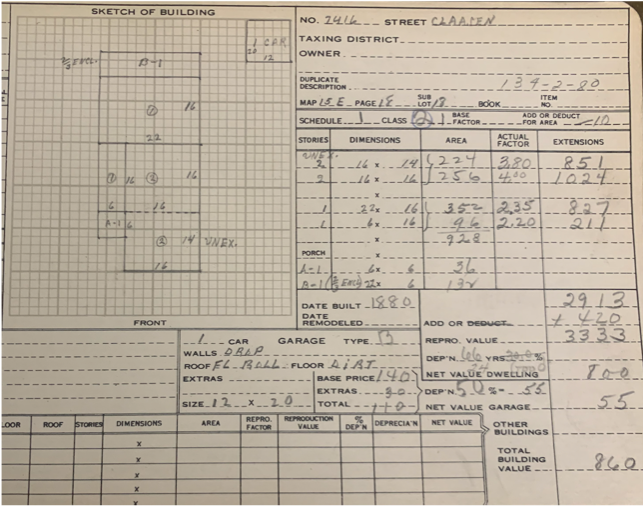 SKETCH OF BUILDING
NO. 2416 STREET CLAASEN
TAXING DISTRICT
OWNER
1 CAR
20
12
2/3 ENCL.
B-1
DUPLICATE
DESCRIPTION 134-2-80
MAP 15 E PAGE 18 SUB LOT 18 BOOK ITEM NO.
SCHEDULE 1 CLASS 2 1 BASE FACTOR ADD OR DEDUCT FOR AREA -10
① 16
22
① 16 ② 16
6 16
A-1 6
② 14 UNEX.
16
FRONT
STORIES DIMENSIONS AREA ACTUAL FACTOR EXTENSIONS
UNEX.
2 16 x 14 224 3.80 851
2 16 x 16 256 4.00 1024
x
1 22 x 16 352 2.35 827
1 6 x 16 96 2.20 211
x 928
PORCH x
A-1 6 x 6 36
B-1 (2/3 ENCL) 22 x 6 132
DATE BUILT 1880 2913
DATE REMODELED ADD OR DEDUCT + 420
1 CAR GARAGE TYPE B REPRO. VALUE 3333
WALLS DROP DEP'N 66 YRS %
ROOF FL ROLL FLOOR DIRT NET VALUE DWELLING 800
EXTRAS BASE PRICE 140 DEP'N 50 % - 55
EXTRAS 30
SIZE 12 x 20 TOTAL 110 NET VALUE GARAGE 55
LOOR ROOF STORIES DIMENSIONS AREA REPRO. FACTOR REPRODUCTION VALUE % DEP'N DEPRECIA'N NET VALUE OTHER BUILDINGS
x
x
x TOTAL BUILDING VALUE 860
x
x